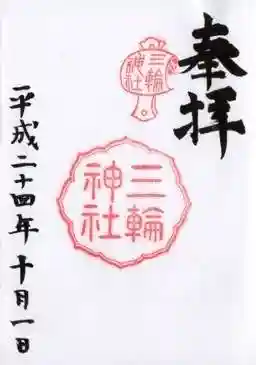 奉拝
三輪
神社
三輪
神社
平成二十四年十月一日